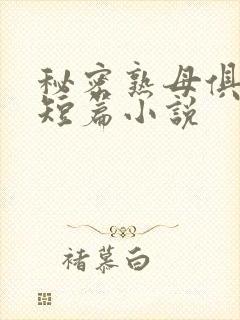 秘密熟母俱
短篇小说
褚慕白